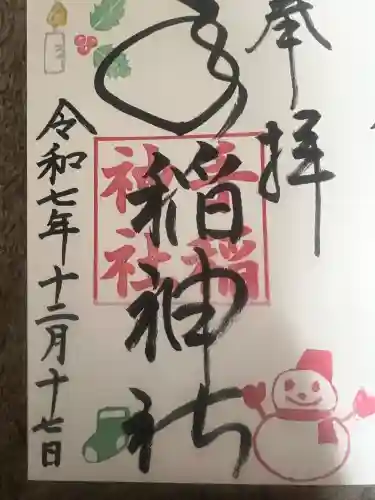 奉拝
稲神社
稲
神社
令和七年十二月十七日